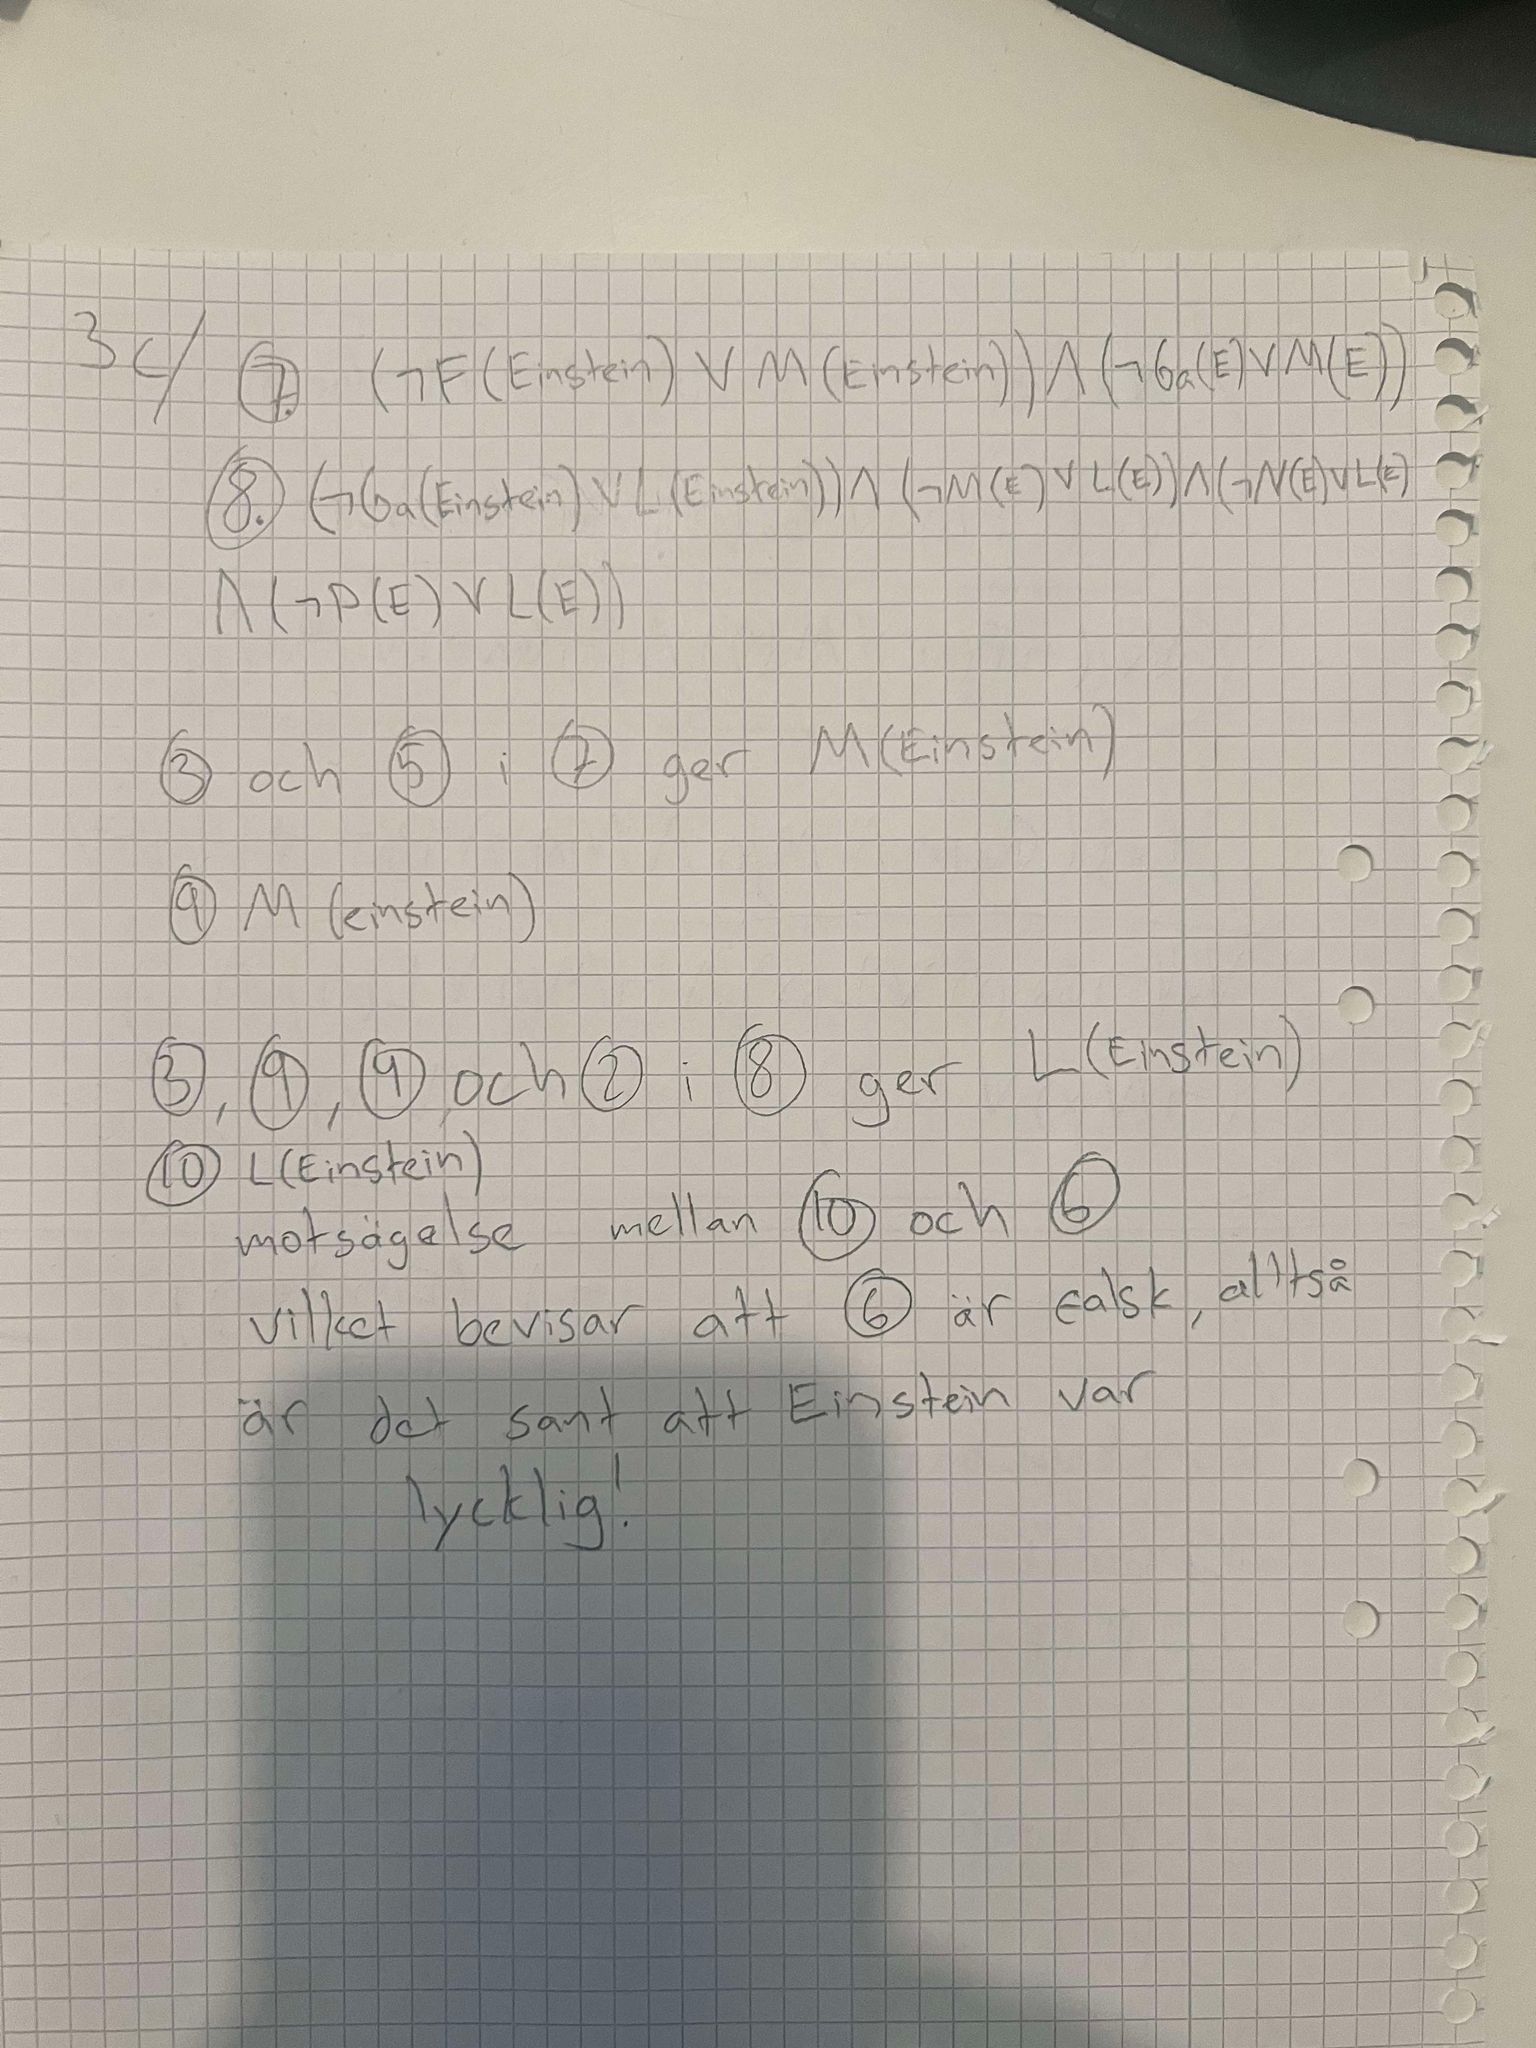 3c/ ⑦. (¬F(Einstein) ∨ M(Einstein)) ∧ (¬Ga(E) ∨ M(E))
⑧. (¬Ga(Einstein) ∨ L(Einstein)) ∧ (¬M(E) ∨ L(E)) ∧ (¬N(E) ∨ L(E)
∧ (¬P(E) ∨ L(E))
③ och ⑤ i ⑦ ger M(Einstein)
⑨ M (einstein)
③, ⑨, ④ och ② i ⑧ ger L(Einstein)
⑩ L(Einstein)
motsägelse mellan ⑩ och ⑥
vilket bevisar att ⑥ är falsk, alltså
är det sant att Einstein var
lycklig!